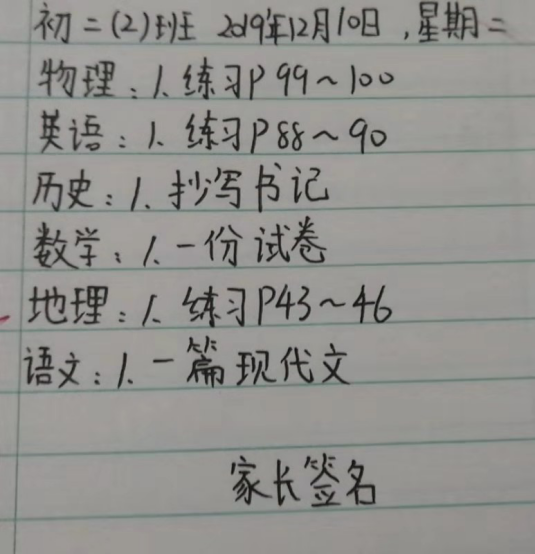 初二(2)班 2019年12月10日,星期二
物理:1. 练习P99~100
英语:1. 练习P88~90
历史:1. 抄写书记
数学:1. 一份试卷
地理:1. 练习P43~46
语文:1. 一篇现代文
家长签名